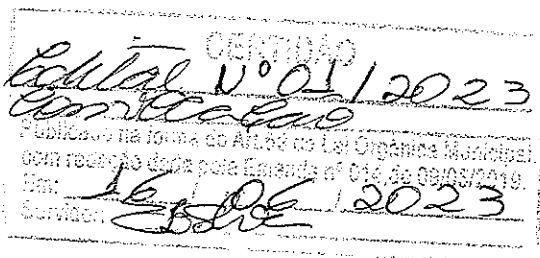 CERTIDÃO
Edital Nº 01/2023
Convocação
Publicado na forma do Art. da Lei Orgânica Municipal,
com redação dada pela Emenda nº 014, de 09/05/2019.
Em: 16 / 06 / 2023
Servidor: